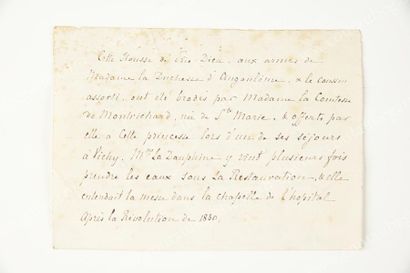 Cette Housse de Prie-Dieu, aux armes de
Madame la Duchesse d'Angoulême, & le coussin
assorti, ont été brodés par Madame la Comtesse
de Montrichard, née de Ste Marie, & offerts par
elle à cette princesse lors d'un de ses séjours
à Vichy. Mme La Dauphine y vint plusieurs fois
prendre les eaux sous la Restauration, & elle
entendait la messe dans la chapelle de l'hopital
après la Révolution de 1830.